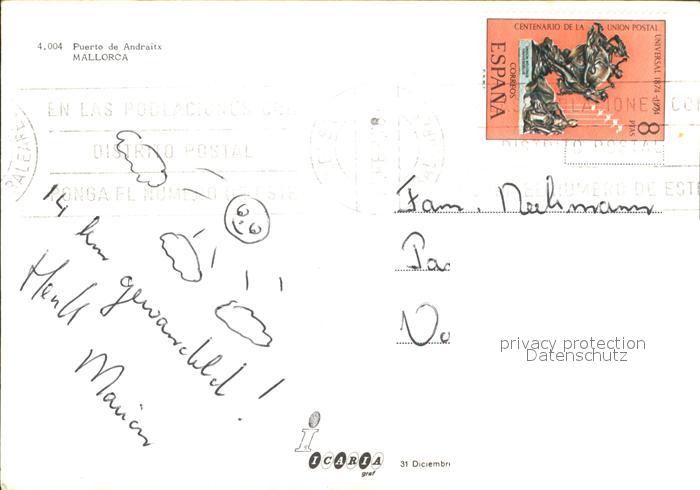 4.004 Puerto de Andraitx
MALLORCA
CENTENARIO DE LA UNION POSTAL UNIVERSAL 1874-1974
CORREOS
ESPAÑA
8 PTAS
EN LAS POBLACIONES CON
DISTRITO POSTAL
PONGA EL NUMERO DE ESTE
POBLACIONES CON
DISTRITO POSTAL
EL NUMERO DE ESTE
14 km gewandeld!
Henk
Marion
Fam.
Pa
No
privacy protection
Datenschutz
ICARIA
graf
31 Diciembre